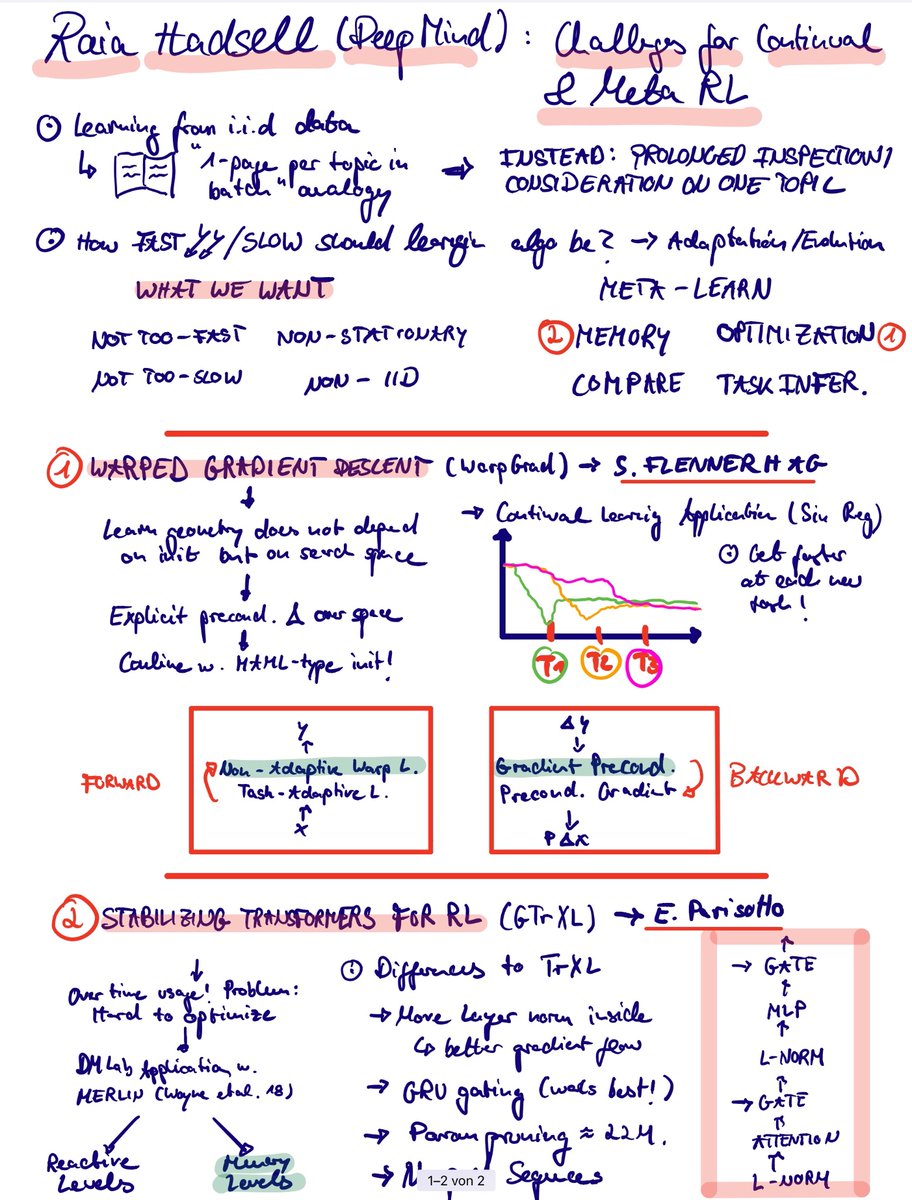 Raia Hadsell (DeepMind) : Challenges for Continual
& Meta RL
Learning from i.i.d data
↳ "1-page per topic in
batch" analogy
→ INSTEAD: PROLONGED INSPECTION/
CONSIDERATION ON ONE TOPIC
How FAST /SLOW should algo be? → Adaptation/Evolution
WHAT WE WANT
META-LEARN
NOT TOO-FAST NON-STATIONARY
② MEMORY OPTIMIZATION ①
NOT TOO-SLOW NON-IID
COMPARE TASK INFER.
① WARPED GRADIENT DESCENT (WarpGrad) → S. FLENNERHAG
Learn geometry does not depend
on init but on search space
Explicit precond. Δ over space
Combine w. MAML-type init!
→ Continual Learning Application (Sin Reg)
Get faster
at each new
task!
T1 T2 T3
FORWARD
Y
Non-Adaptive Warp L.
Task-Adaptive L.
X
Δy
Gradient Precond.
Precond. Gradient
P Δx
BACKWARD
② STABILIZING TRANSFORMERS FOR RL (GTrXL) → E. Parisotto
Over time usage! Problem:
Hard to optimize
DMLab Application w.
MERLIN (Wayne et al. 18)
Reactive
Levels
Memory
Levels
Differences to TrXL
→ Move Layer norm inside
↳ better gradient flow
→ GRU gating (works best!)
→ Param pruning ≈ 22M.
→ Sequences
→ GATE
MLP
L-NORM
→ GATE
ATTENTION
L-NORM
1–2 von 2